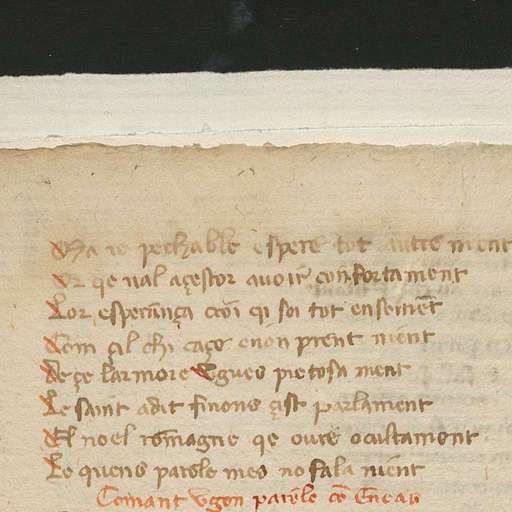 Ma ie pechable espere tot autre ment
Or qe ual açestor auoir confortament
Lor esperança croi qi soi tut ensemẽt
Com çil chi caçe e non prent nient
De çe larmore Vgues pietosa ment
Le saint adit finons çist parlament
El no el romagne qe oure ocultament
Le quens parole mes no fala nient
Comant vgon parole cõ Eneas